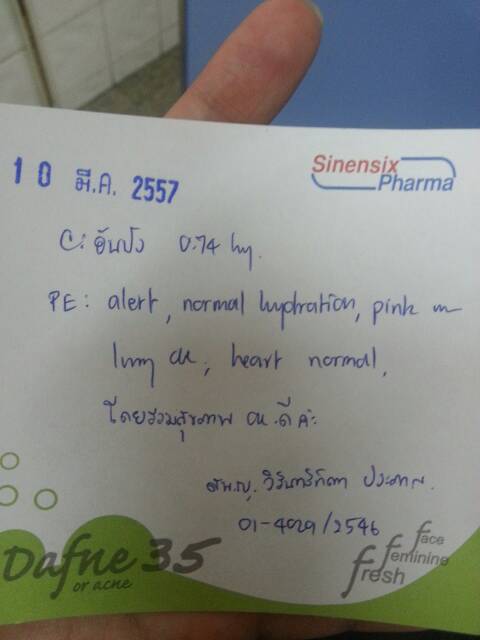 10 มี.ค. 2557
Sinensix
Pharma
C: อันปัง 0.74 kg.
PE: alert, normal hydration, pink m
lung clear, heart normal,
โดยรวมสุขภาพ ดีค่ะ
สพ.ญ.
01-4029/2546
Dafne 35
or acne
face
feminine
fresh